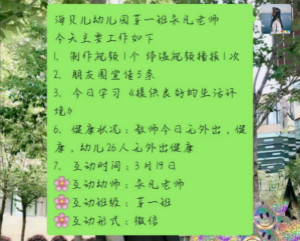 海贝儿幼儿园茅一班朵凡老师
今天主要工作如下
1. 制作视频1个 停课视频播报1次
2. 朋友圈宣传5条
3. 今日学习《提供良好的生活环
境》
6. 健康状况：教师今日无外出，健
康，幼儿26人无外出健康
7. 互动时间：3月19日
互动幼师：朵凡老师
互动班级：茅一班
互动形式：微信